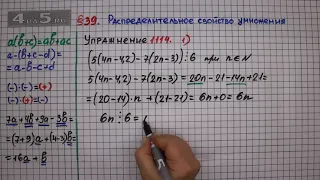 §39. Распределительное свойство умножения
a(b+c)=ab+ac
a-(b+c-d)=
=a-b-c+d
(-)·(-)=(+)
(-)·(+)=(-)
7a+4b+9a-3b=
=(7+9)a+(4-3)b=
=16a+b
Упражнение 1114. 1)
(5(4n-4,2)-7(2n-3))⋮6 при n∈N
5(4n-4,2)-7(2n-3)=20n-21-14n+21=
=(20-14)·n+(21-21)=6n+0=6n
6n⋮6=